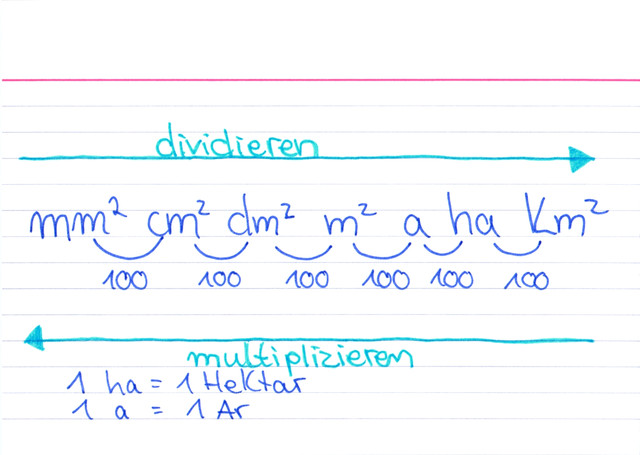 dividieren
mm² cm² dm² m² a ha Km²
100 100 100 100 100 100
multiplizieren
1 ha = 1 Hektar
1 a = 1 Ar